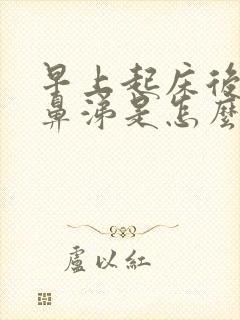 早上起床後
鼻涕是怎麼
盧以紅